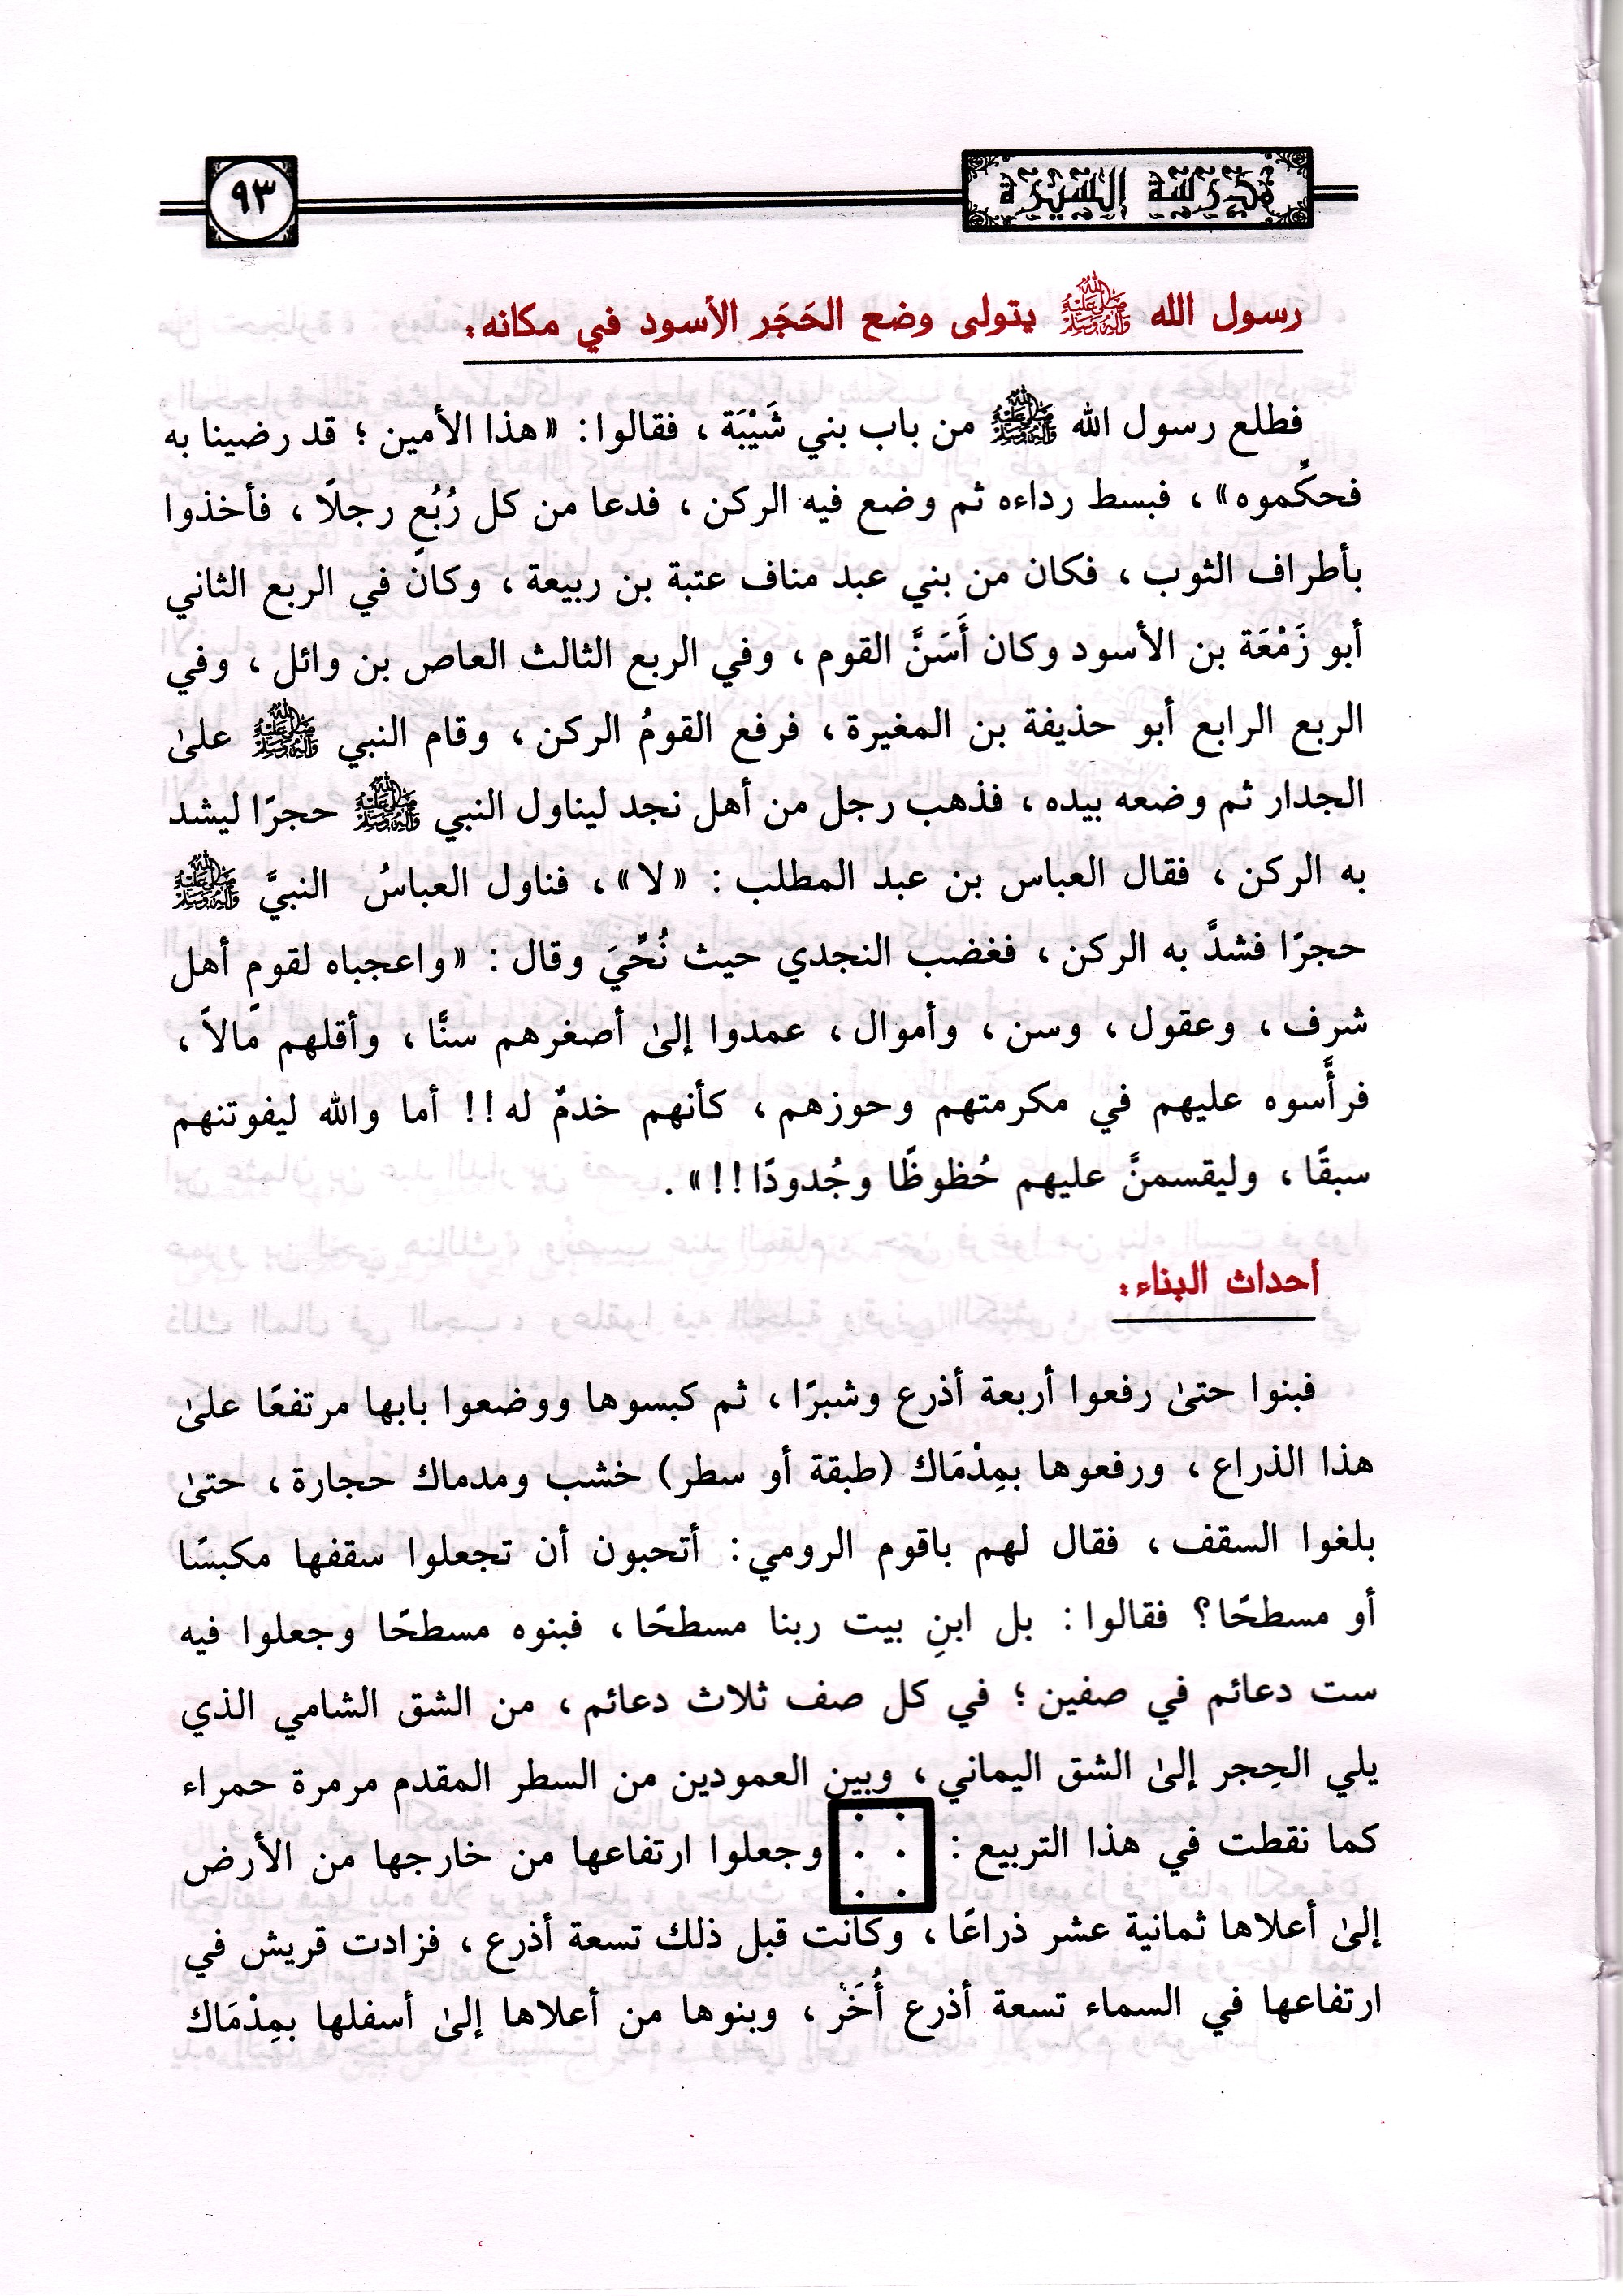 مدرسة السيرة
٩٣
رسول الله ﷺ يتولى وضع الحَجَر الأسود في مكانه:
فطلع رسول الله ﷺ من باب بني شَيْبَة ، فقالوا : « هذا الأمين ؛ قد رضينا به
فحكِّموه » ، فبسط رداءه ثم وضع فيه الركن ، فدعا من كل رُبُعٍ رجلًا ، فأخذوا
بأطراف الثوب ، فكان من بني عبد مناف عتبة بن ربيعة ، وكان في الربع الثاني
أبو زَمْعَة بن الأسود وكان أَسَنَّ القوم ، وفي الربع الثالث العاص بن وائل ، وفي
الربع الرابع أبو حذيفة بن المغيرة ، فرفع القومُ الركن ، وقام النبي ﷺ علىٰ
الجدار ثم وضعه بيده ، فذهب رجل من أهل نجد ليناول النبي ﷺ حجرًا ليشد
به الركن ، فقال العباس بن عبد المطلب : « لا » ، فناول العباسُ النبيَّ ﷺ
حجرًا فشدَّ به الركن ، فغضب النجدي حيث نُحِّيَ وقال : « واعجباه لقومٍ أهل
شرف ، وعقول ، وسن ، وأموال ، عمدوا إلىٰ أصغرهم سنًّا ، وأقلهم مالاً ،
فرأَّسوه عليهم في مكرمتهم وحوزهم ، كأنهم خدمٌ له !! أما والله ليفوتنهم
سبقًا ، وليقسمنَّ عليهم حُظوظًا وجُدودًا !! » .
أحداث البناء:
فبنوا حتىٰ رفعوا أربعة أذرع وشبرًا ، ثم كبسوها ووضعوا بابها مرتفعًا علىٰ
هذا الذراع ، ورفعوها بمِدْمَاك (طبقة أو سطر) خشب ومدماك حجارة ، حتىٰ
بلغوا السقف ، فقال لهم باقوم الرومي : أتحبون أن تجعلوا سقفها مكبسًا
أو مسطحًا؟ فقالوا : بل ابنِ بيت ربنا مسطحًا ، فبنوه مسطحًا وجعلوا فيه
ست دعائم في صفين ؛ في كل صف ثلاث دعائم ، من الشق الشامي الذي
يلي الحِجر إلىٰ الشق اليماني ، وبين العمودين من السطر المقدم مرمرة حمراء
كما نقطت في هذا التربيع : وجعلوا ارتفاعها من خارجها من الأرض
إلىٰ أعلاها ثمانية عشر ذراعًا ، وكانت قبل ذلك تسعة أذرع ، فزادت قريش في
ارتفاعها في السماء تسعة أذرع أُخَر ، وبنوها من أعلاها إلىٰ أسفلها بمِدْمَاك